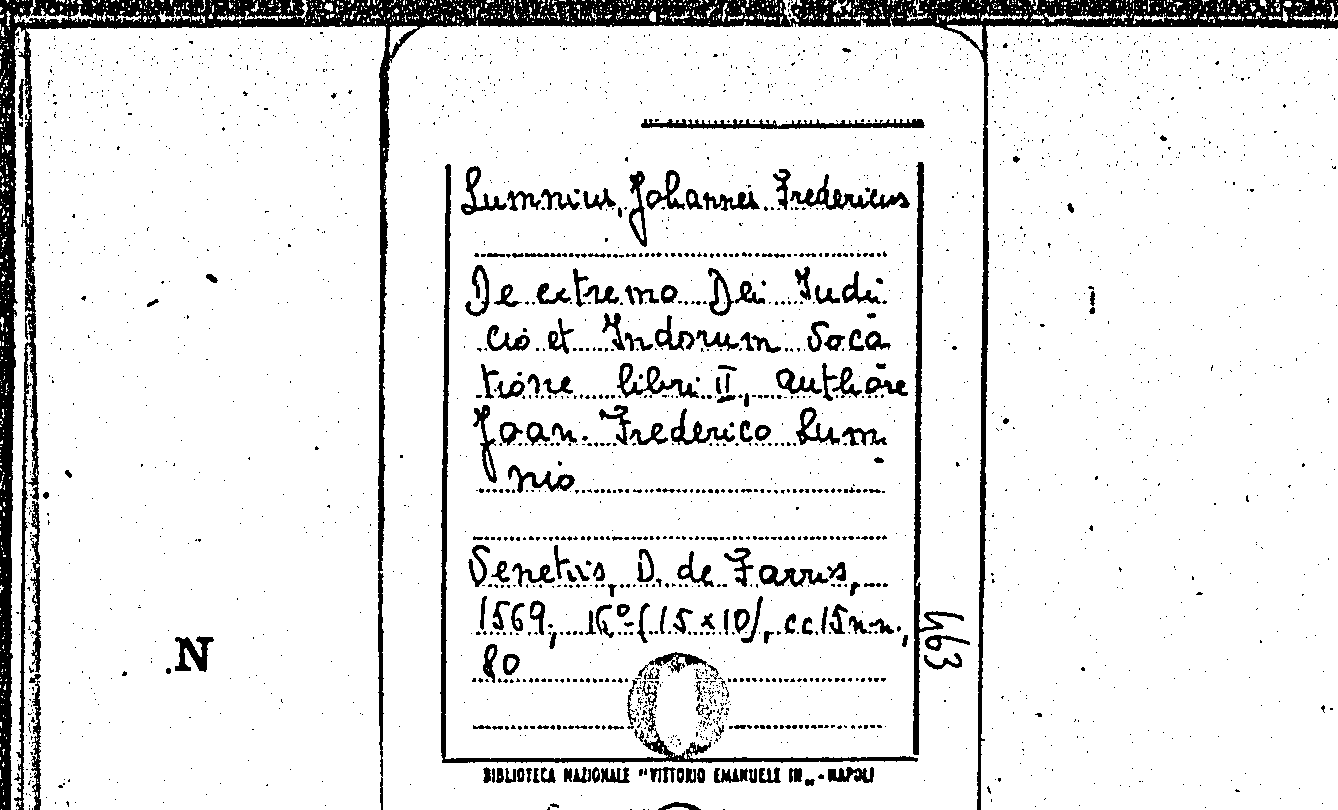 Lumnius, Johannes Fredericus
De extremo Dei Iudi
cio et Indorum voca
tione libri II, authore
Joan. Frederico Lum
nio
Venetiis, D. de Farris,
1569; 16º (15 x 10), cc 15 n.n.,
80
463
N
BIBLIOTECA NAZIONALE "VITTORIO EMANUELE III„ - NAPOLI